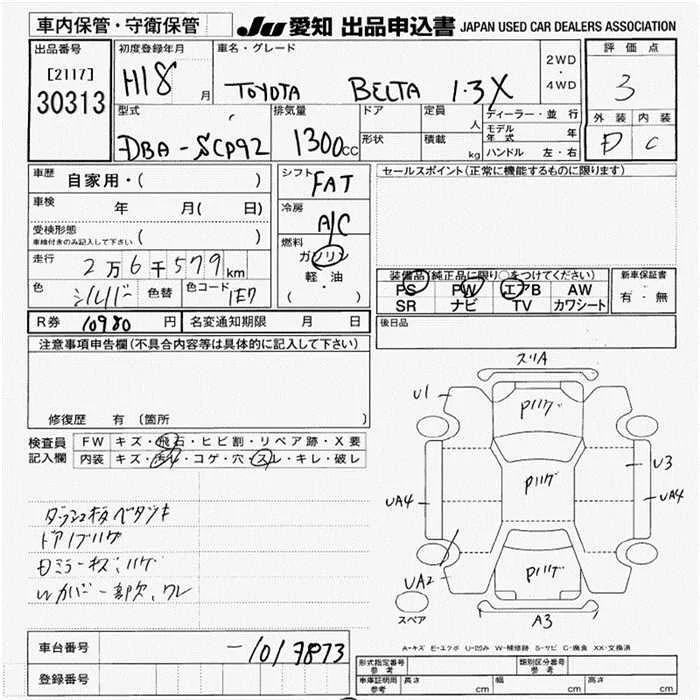 車内保管・守衛保管 JU 愛知 出品申込書 JAPAN USED CAR DEALERS ASSOCIATION
出品番号
[2117]
30313
初度登録年月
H18 月
車名・グレード
TOYOTA BELTA 1.3X
2WD
・
4WD
評価点
3
外装 内装
D C
型式
DBA-SCP92
排気量
1300cc
ドア
形状
定員
人
積載
kg
ディーラー・並行
モデル年式 年
ハンドル 左・右
車歴
自家用・( )
車検
年 月( 日)
受検形態
車検付きのみ記入して下さい ( )
走行
2万6千579km
色
シルバー
色替
色コード
1E7
シフト
FAT
冷房
A/C
燃料
ガソリン
軽・油
( ・ )
セールスポイント(正常に機能するものに限ります)
装備品(純正品に限り○をつけてください)
PS PW エアB AW
SR ナビ TV カワシート
新車保証書
有・無
R券 10980 円
名変通知期限 月 日
後日品
注意事項申告欄(不具合内容等は具体的に記入して下さい)
修復歴 有 〔箇所 〕
検査員
記入欄
FW キズ・飛石・ヒビ割・リペア跡・X要
内装 キズ・汚れ・コゲ・穴・スレ・キレ・破レ
ダッシュ板ベタツキ
ドアノブハゲ
スリA
U1
Pハゲ
Pハゲ
U3
UA4
UA4
Pハゲ
UA2
A3
スペア
A-キズ E-エクボ U-凹み W-補修跡 S-サビ C-腐食 XX-交換済
車台番号
-1017873
登録番号
形式指定番号
参考
類別区分番号
参考
車庫証明用
参考
長さ cm
幅 cm
高さ cm